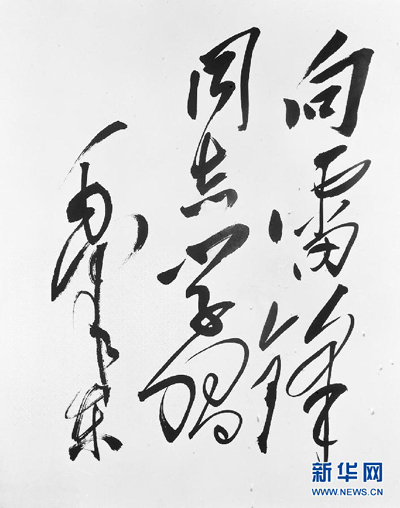 向雷锋
同志学习
毛泽东
新华网
WWW.NEWS.CN